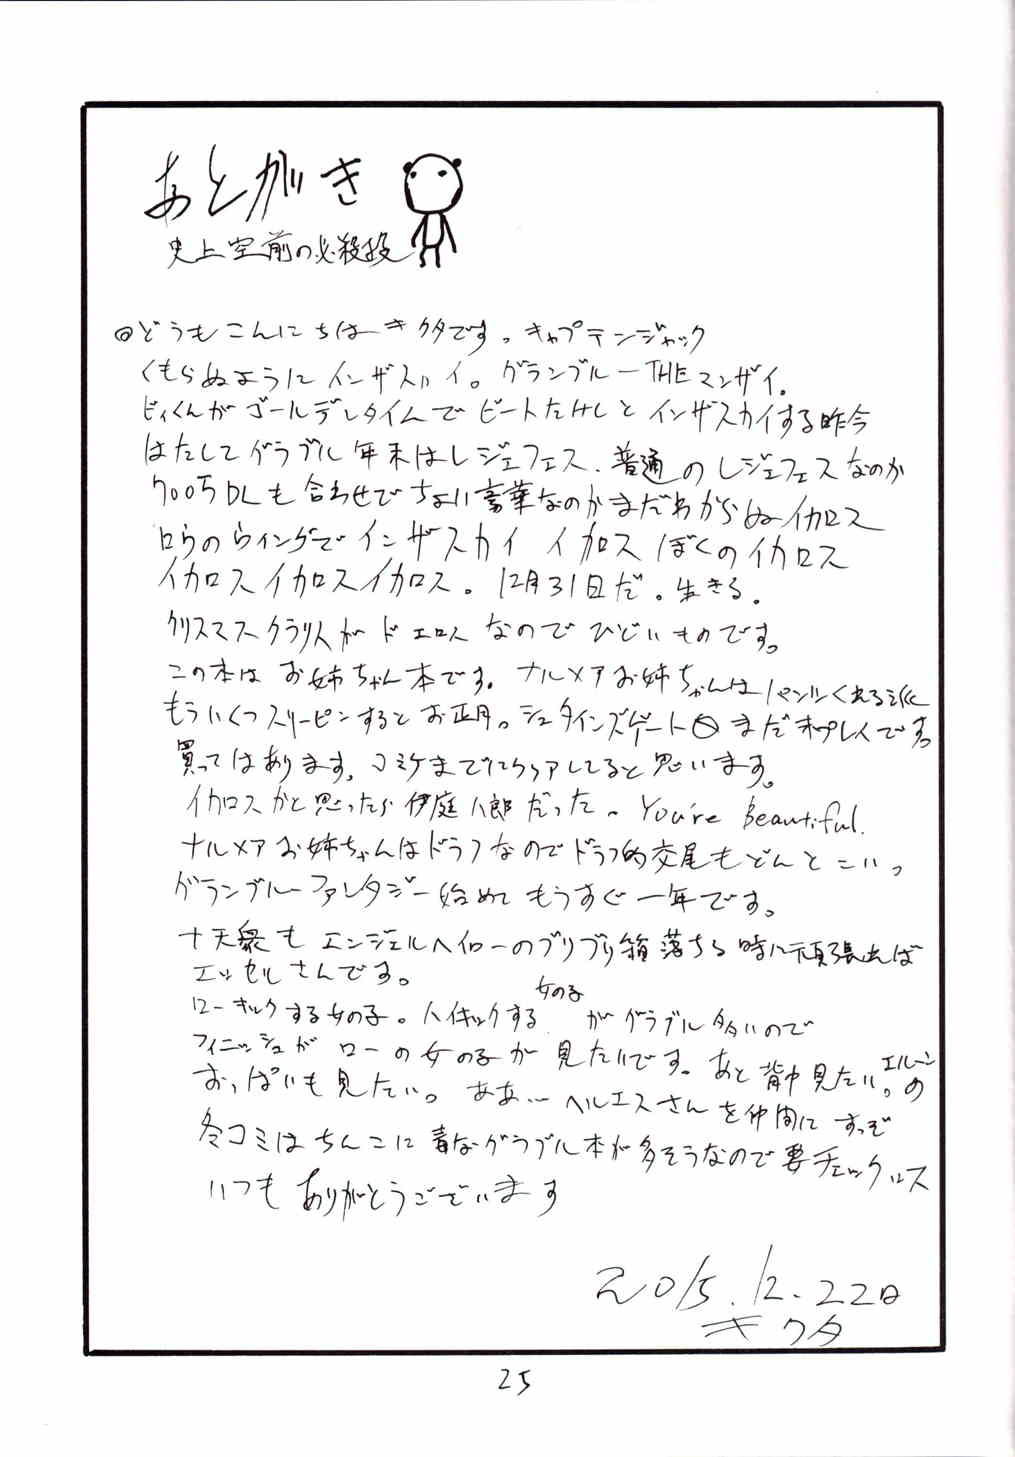 あとがき
史上空前の必殺技
◎どうもこんにちはーキクタです。キャプテンジャック
くもらぬようにインザスカイ。グランブルーTHEマンザイ。
ビィくんがゴールデンタイムでビートたけしとインザスカイする昨今
はたしてグラブル年末はレジェフェス、普通のレジェフェスなのか
700万DLも合わせでちょい豪華なのかまだわからぬイカロス
ロウのウィングでインザスカイ イカロス ぼくのイカロス
イカロスイカロスイカロス。12月31日だ。生きる。
クリスマスクラリスがドエロスなのでひどいものです。
この本はお姉ちゃん本です。ナルメアお姉ちゃんはパンツくれる派
もういくつスリーピンするとお正月。シュタインズゲート0まだ未プレイです。
買ってはあります。コミケまでにクリアしてると思います。
イカロスかと思ったら伊庭八郎だった〜You're Beautiful.
ナルメアお姉ちゃんはドラフなのでドラフ的交尾もどんとこいっ
グランブルーファンタジー始めてもうすぐ一年です。
十天衆もエンジェルヘイローのブリブリ箱落ちる時に頑張れば
エッセルさんです。
ローキックする女の子。ハイキックする女の子がグラブル多いので
フィニッシュがローの女の子が見たいです。あと背中見たい。エルーンの
おっぱいも見たい。ああ…ヘルエスさんを仲間にすっぞ
冬コミはちんこに毒なグラブル本が多そうなので要チェックッス
いつもありがとうございます
2015.12.22日
キクタ
25